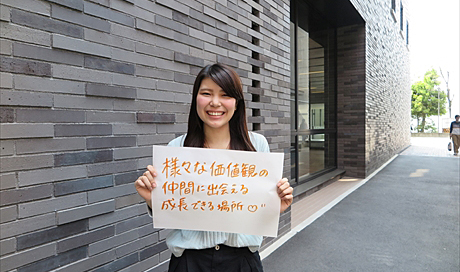 様々な価値観の
仲間に出会える
成長できる場所♡